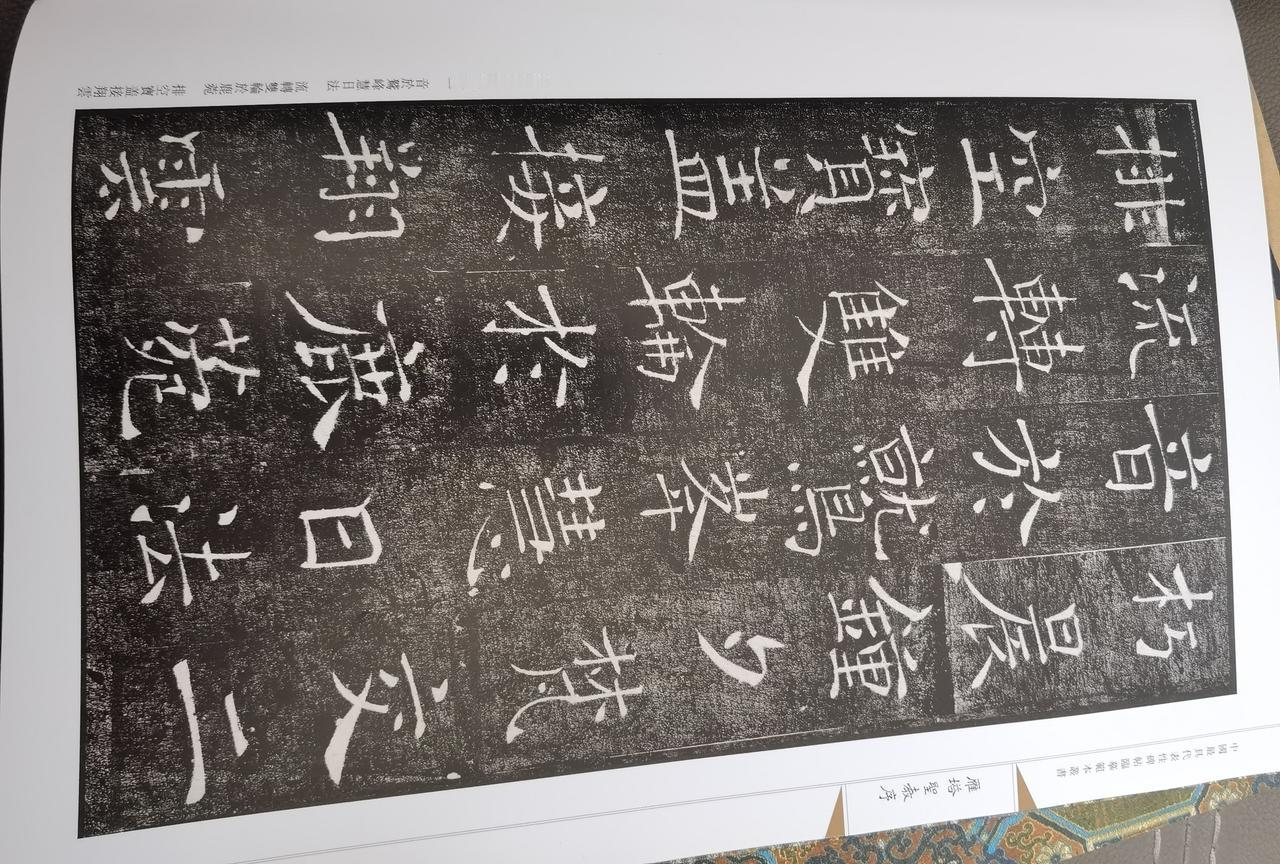 中國最具代表性碑帖臨摹範本叢書
雁塔聖教序
朽晨鐘夕梵交二
音於鷲峯慧日法
流轉雙輪於鹿苑
排空寶蓋接翔雲
音於鷲峰慧日法 流轉雙輪於鹿苑 排空寶蓋接翔雲